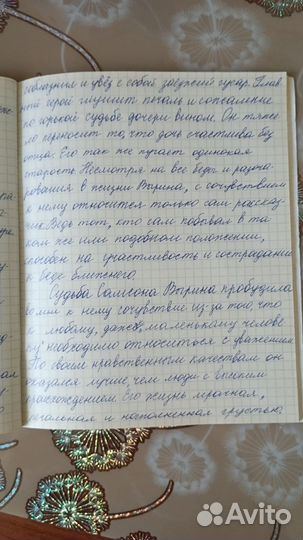 соблазнил и увёз с собой заезжий гусар. Глав
ный герой глушит печаль и сожаление
по горькой судьбе дочери вином. Он тяже
ло переносит то, что дочь счастлива без
отца. Его так же пугает одинокая
старость. Несмотря на все беды и разоча
рования в жизни Вырина, с сочувствием
к нему относится только сам рассказ
чик. Ведь тот, кто сам побывал в та
ком же или подобном положении,
способен на участливость и сострадание
к беде ближнего.
Судьба Самсона Вырина пробудила
во мне к нему сочувствие из-за того, что
к любому, даже „маленькому челове
ку" необходимо относиться с уважением.
По своим нравственным качествам он
оказался лучше, чем люди с высоким
происхождением. Его жизнь мрачная,
печальная и наполненная грустью.
Avito